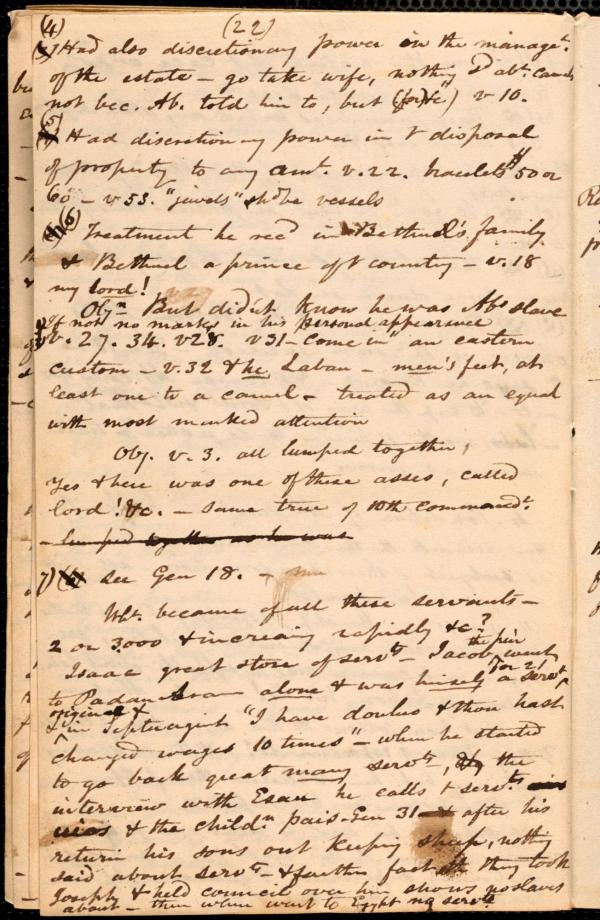 (22)
(4)
Had also discretionary power in the managet.
of the estate – go take wife, nothing abt. camels
not bec. Ab. told him to, but v 10.
(5) Had discretionary power in disposal
of property to any amt. v. 22. bracelets $50 or
60 – v 53. "jewels" shd be vessels
(6) Treatment he recd in Bethuel's family
& Bethuel a prince of country – v. 18
my lord!
Objn But didn't know he was Abs slave
If not no marks in his personal appearance
v. 27. 34. v 28. v 31 – "come in" an eastern
custom – v. 32 & he Laban – men's feet, at
least one to a camel – treated as an equal
with most marked attention
Obj. v. 3. all lumped together;
Yes & here was one of these asses, called
lord! &c. – same true of 10th commandt.
– lumped together as he was
7) see Gen 18. –
Wht. became of all these servants –
2 or 3000 & increasing rapidly &c?
Isaac great store of servts – Jacob, the heir went
to Padan Aram alone & was himself a servt for 21
original &
in Septuagint "I have doulos & thou hast
changed wages 10 times" – when he started
to go back great many servts, the
interview with Esau he calls servts.
& the childn pais – Gen 31 – & after his
return his sons out keeping sheep, nothing
said about servts – & farther fact they took
Joseph & held council over him shows no slaves
about – then when went to Egypt no servts